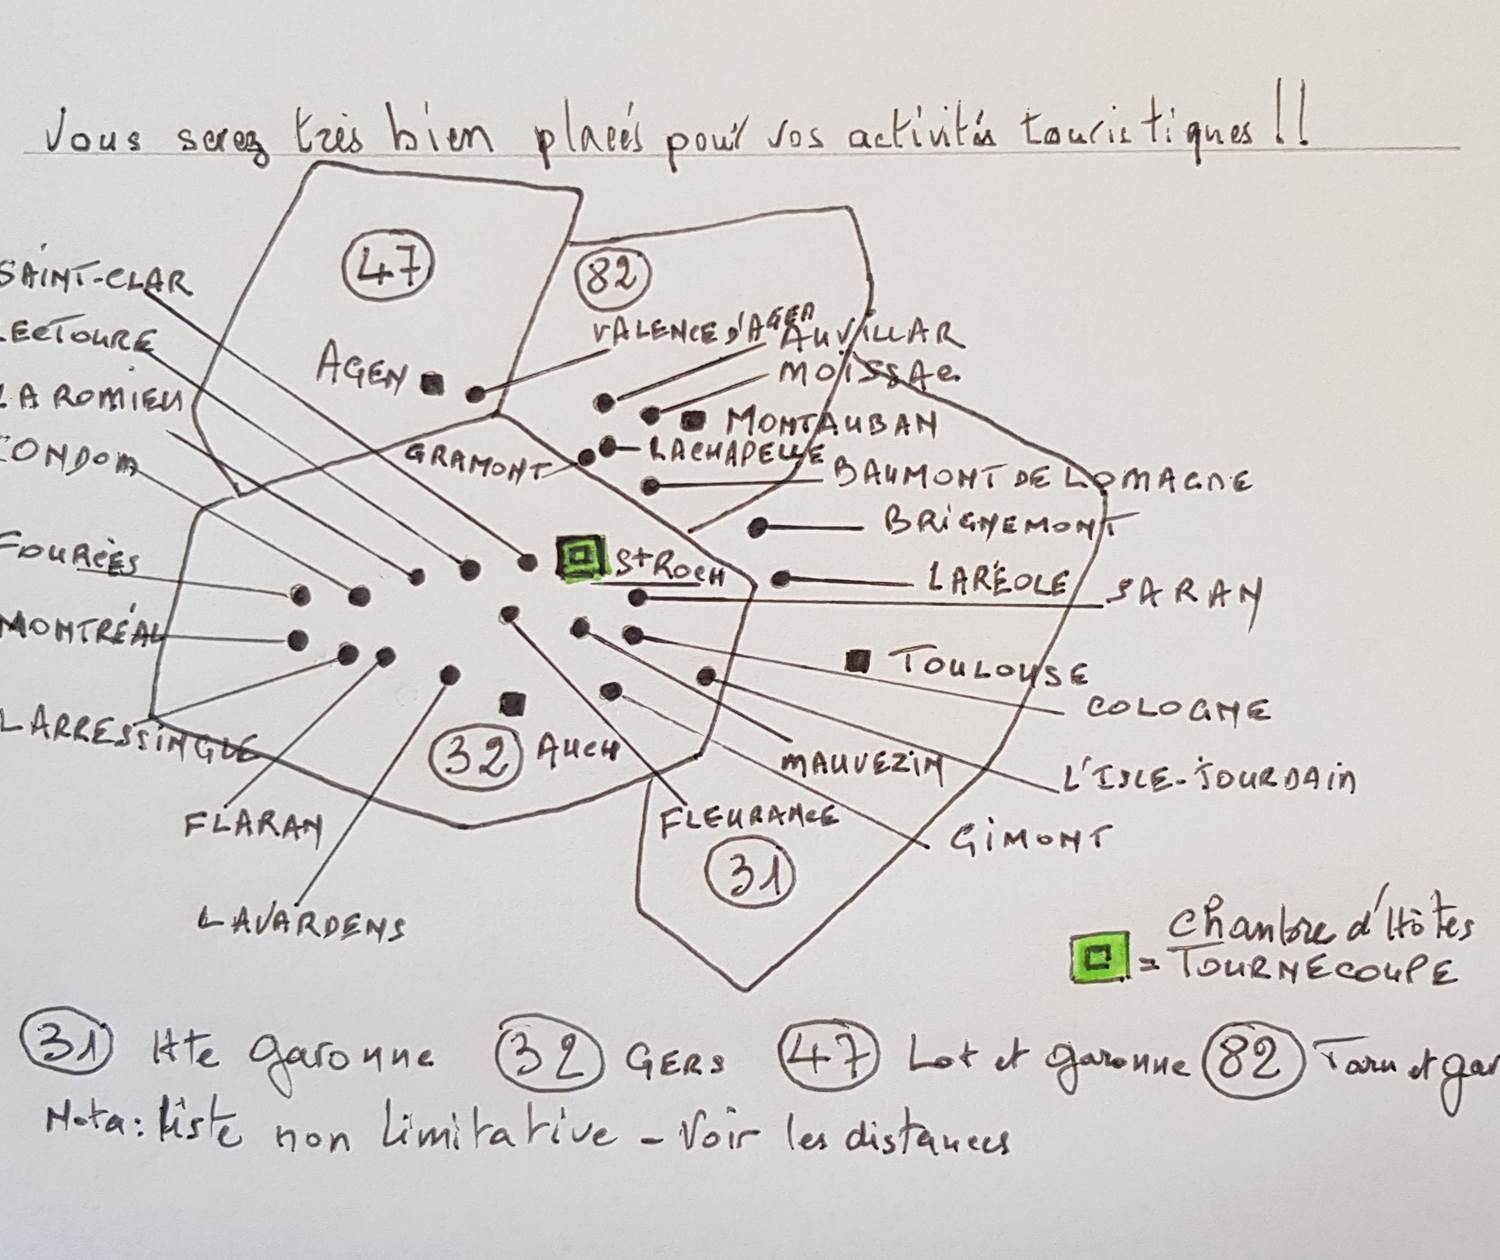 Vous serez très bien placés pour vos activités touristiques !!
47
82
SAINT-CLAR
LECTOURE
LA ROMIEU
CONDOM
FOURCÈS
MONTRÉAL
LARRESSINGLE
FLARAN
LAVARDENS
AGEN
VALENCE D'AGEN
AUVILLAR
MOISSAC
MONTAUBAN
GRAMONT
LACHAPELLE
BAUMONT DE LOMAGNE
BRIGNEMONT
St ROCH
LARÉOLE
SARAN
TOULOUSE
COLOGNE
32
AUCH
MAUVEZIN
L'ISLE-JOURDAIN
FLEURANCE
GIMONT
31
= Chambre d'Hôtes
TOURNECOUPE
31 Hte garonne 32 GERS 47 Lot et garonne 82 Tarn et gar
Nota: liste non limitative - Voir les distances